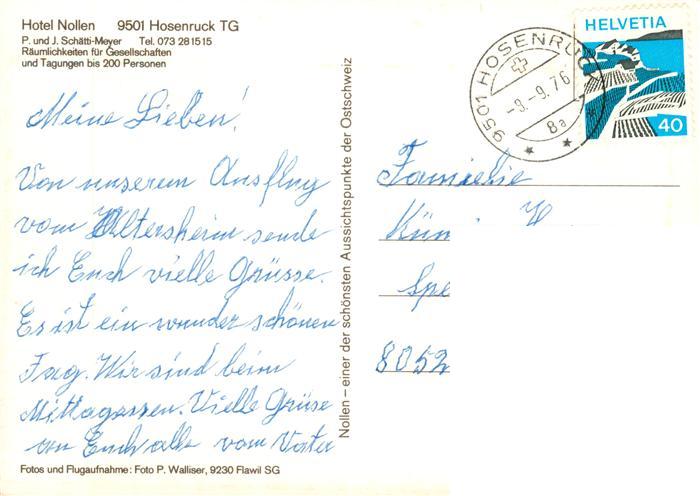 Hotel Nollen 9501 Hosenruck TG
P. und J. Schätti-Meyer Tel. 073 281515
Räumlichkeiten für Gesellschaften
und Tagungen bis 200 Personen
Meine Lieben!
Von unserem Ausflug
vom Altersheim sende
ich Euch vielle Grüsse.
Es ist ein wunder schönen
Tag. Wir sind beim
Mittagessen. Vielle Grüse
an Euch alle vom Vater
Fotos und Flugaufnahme: Foto P. Walliser, 9230 Flawil SG
Nollen – einer der schönsten Aussichtspunkte der Ostschweiz
9501 HOSENRUCK
-9.76
8a
HELVETIA
40
Familie
Kün H
Spe
8052